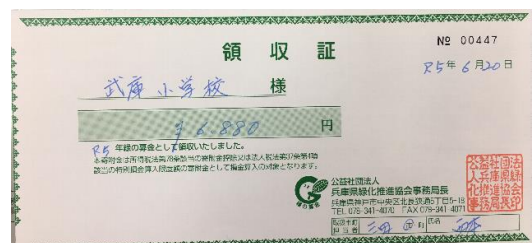 領収証
№ 00447
R5年 6月20日
武庫小学校 様
¥6,880 円
R5 年緑の募金として領収いたしました。
本寄附金は所得税法第78条該当の寄附金控除又は法人税法第37条第4項
該当の特別損金算入限度額の寄附金として損金算入の対象となります。
緑の募金
公益社団法人
兵庫県緑化推進協会事務局長
兵庫県神戸市中央区北長狭通5丁目5-18
TEL 078-341-4070 FAX 078-341-4071
公益社団法人兵庫県緑化推進協会事務局長印
取扱市町
担当者
三田 市町
氏名